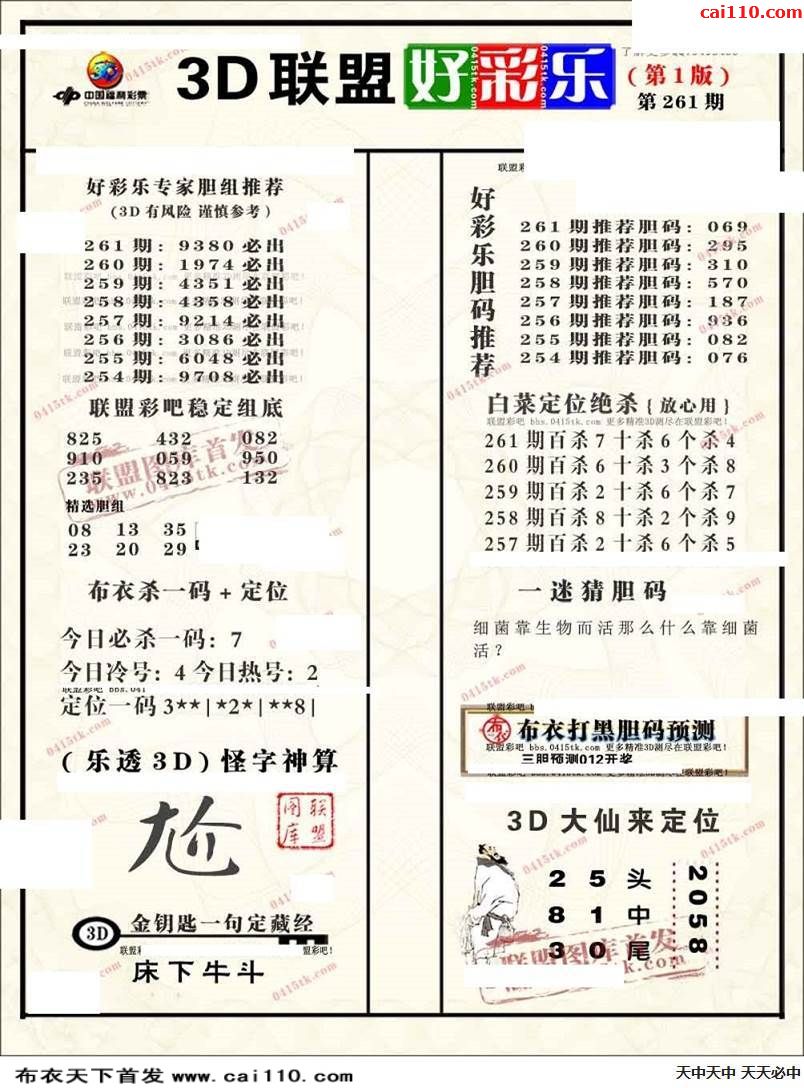 cai110.com
中国福利彩票
CHINA WELFARE LOTTERY
3D联盟好彩乐
(第1版)
第261期
好彩乐专家胆组推荐
(3D有风险 谨慎参考)
261期: 9380必出
260期: 1974必出
259期: 4351必出
258期: 4358必出
257期: 9214必出
256期: 3086必出
255期: 6048必出
254期: 9708必出
联盟彩吧稳定组底
825 432 082
910 059 950
235 823 132
精选胆组
08 13 35
23 20 29
布衣杀一码+定位
今日必杀一码: 7
今日冷号: 4 今日热号: 2
定位一码 3**|*2*|**8|
(乐透3D)怪字神算
尬
联盟图库
3D
金钥匙一句定藏经
床下牛斗
好彩乐胆码推荐
261期推荐胆码: 069
260期推荐胆码: 295
259期推荐胆码: 310
258期推荐胆码: 570
257期推荐胆码: 187
256期推荐胆码: 936
255期推荐胆码: 082
254期推荐胆码: 076
白菜定位绝杀{放心用}
联盟彩吧 bbs.0415tk.com 更多精准3D测尽在联盟彩吧!
261期百杀7十杀6个杀4
260期百杀6十杀3个杀8
259期百杀2十杀6个杀7
258期百杀8十杀2个杀9
257期百杀2十杀6个杀5
一迷猜胆码
细菌靠生物而活那么什么靠细菌
活?
联盟彩吧!
布衣
布衣打黑胆码预测
联盟彩吧 bbs.0415tk.com 更多精准3D测尽在联盟彩吧!
三胆预测012开奖
3D大仙来定位
2 5 头
8 1 中
3 0 尾
2058
联盟图库首发
www.0415tk.com
0415tk.com
布衣天下首发 www.cai110.com
天中天中 天天必中